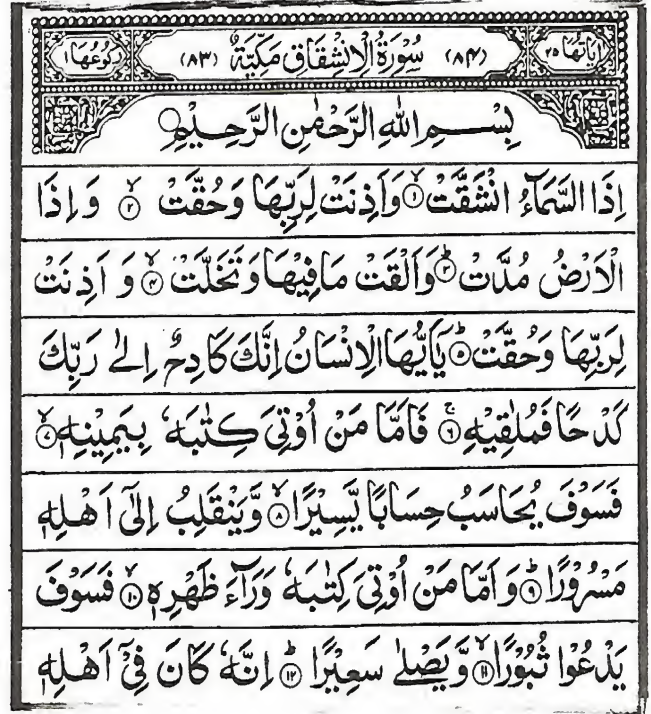 اٰیَاتُهَا ٢٥ (٨٤) سُوْرَةُ الْاِنْشِقَاقِ مَكِّيَّةٌ (٨٣) رُكُوْعُهَا ١
بِسْمِ اللّٰهِ الرَّحْمٰنِ الرَّحِيْمِ
اِذَا السَّمَآءُ انْشَقَّتْ ۙ﴿١﴾ وَاَذِنَتْ لِرَبِّهَا وَحُقَّتْ ۙ﴿٢﴾ وَاِذَا
الْاَرْضُ مُدَّتْ ؕ﴿٣﴾ وَاَلْقَتْ مَا فِيْهَا وَتَخَلَّتْ ۙ﴿٤﴾ وَاَذِنَتْ
لِرَبِّهَا وَحُقَّتْ ؕ﴿٥﴾ يٰۤاَيُّهَا الْاِنْسَانُ اِنَّكَ كَادِحٌ اِلٰى رَبِّكَ
كَدْحًا فَمُلٰقِيْهِ ۚ﴿٦﴾ فَاَمَّا مَنْ اُوْتِيَ كِتٰبَهٗ بِيَمِيْنِهٖ ۙ﴿٧﴾
فَسَوْفَ يُحَاسَبُ حِسَابًا يَّسِيْرًا ۙ﴿٨﴾ وَّيَنْقَلِبُ اِلٰۤى اَهْلِهٖ
مَسْرُوْرًا ؕ﴿٩﴾ وَاَمَّا مَنْ اُوْتِيَ كِتٰبَهٗ وَرَآءَ ظَهْرِهٖ ۙ﴿١٠﴾ فَسَوْفَ
يَدْعُوْا ثُبُوْرًا ۙ﴿١١﴾ وَّيَصْلٰى سَعِيْرًا ؕ﴿١٢﴾ اِنَّهٗ كَانَ فِيْۤ اَهْلِهٖ